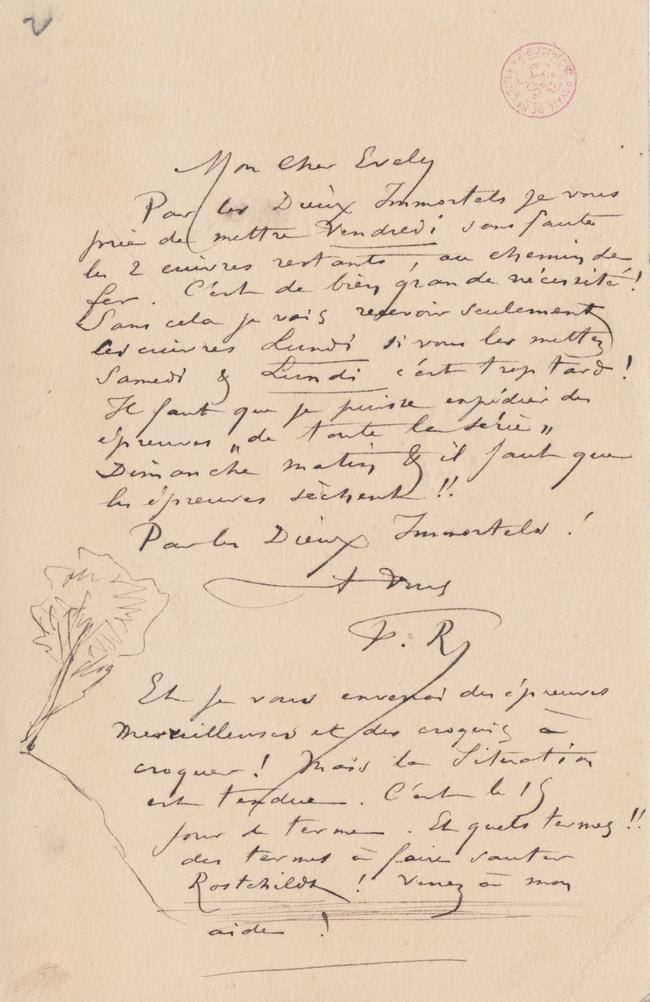 2
BIBLIOTHÈQUE ROYALE DE BELGIQUE
Mon cher Evely
Par les Dieux Immortels je vous
prie de mettre Vendredi sans faute
les 2 cuivres restants, au chemin de
fer. C'est de bien grande nécessité!
Sans cela je vais recevoir seulement
les cuivres Lundi si vous les mettez
Samedi & Lundi c'est trop tard!
Il faut que je puisse expédier des
épreuves „de toute la série„
Dimanche matin & il faut que
les épreuves sèchent!!
Par les Dieux Immortels!
A Vous
F. R
Et je vous enverrai des épreuves
merveilleuses et des croquis à
croquer! Mais la Situation
est tendue. C'est le 15
jour de terme. Et quels termes!!
des termes à faire sauter
Rostchildt! Venez à mon
aide!